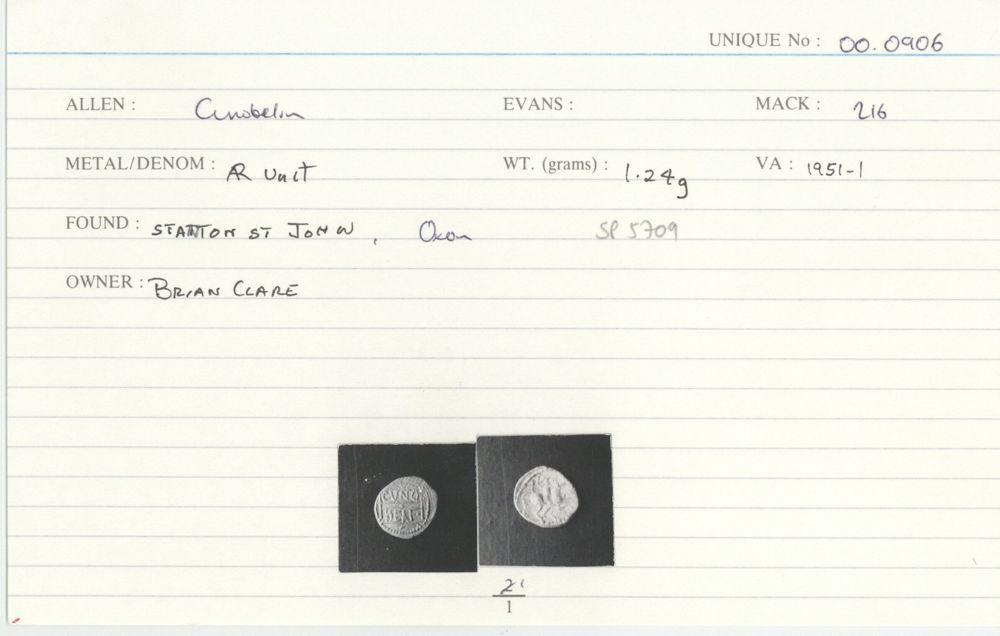 UNIQUE No : 00.0906
ALLEN : Cunobelin EVANS : MACK : 216
METAL/DENOM : AR Unit WT. (grams) : 1.24g VA : 1951-1
FOUND : STANTON ST JOHN , Oxon SP 5709
OWNER : BRIAN CLARE
CUNO
BELI
2
1